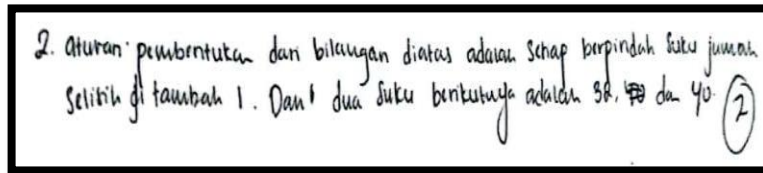 2. aturan pembentukan dari bilangan diatas adalah setiap berpindah suku jumlah
Selisih di tambah 1. Dan dua suku berikutnya adalah 32, dan 40. 2